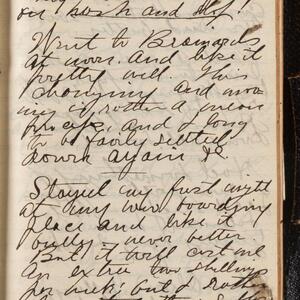 Went to Brainards
at noon. And like it
pretty well. This
changing and mov-
ing is rather a mean
process, and I long
to be fairly settled
down again &c.
Stayed my first night
at my new boarding
place and like it
bully - never better
But it will cost me
an extra two shillings
per week; but I rather